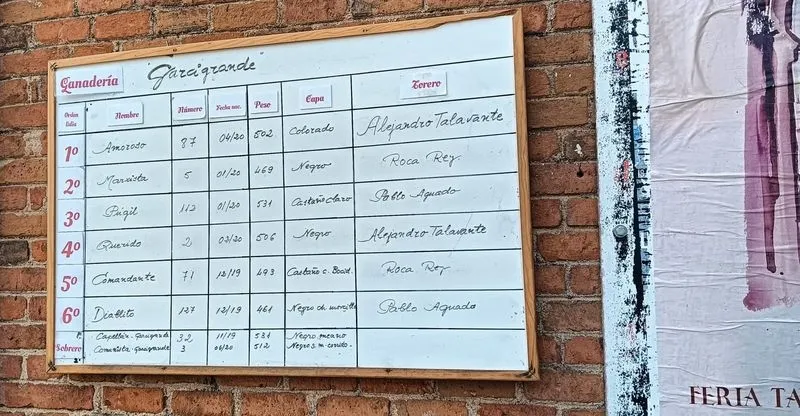 Ganadería "Garcigrande"
Orden lidia Nombre Número Fecha nac. Peso Capa Torero
1º Amoroso 87 04/20 502 Colorado Alejandro Talavante
2º Marxista 5 01/20 469 Negro Roca Rey
3º Púgil 112 01/20 531 Castaño Claro Pablo Aguado
4º Querido 2 02/20 506 Negro Alejandro Talavante
5º Comandante 71 12/19 493 Castaño c. Roca Rey
6º Diablito 127 12/19 461 Negro Pablo Aguado
Sobrero
1º 32 11/19 531 Negro
Comunista - Garcigrande 3 06/20 512 Negro
FERIA TA